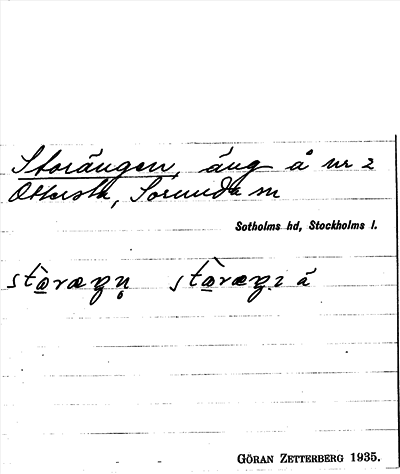 Storängen, äng å nr 2
Ottersta, Sorunda sn
Sotholms hd, Stockholms l.
GÖRAN ZETTERBERG 1935.